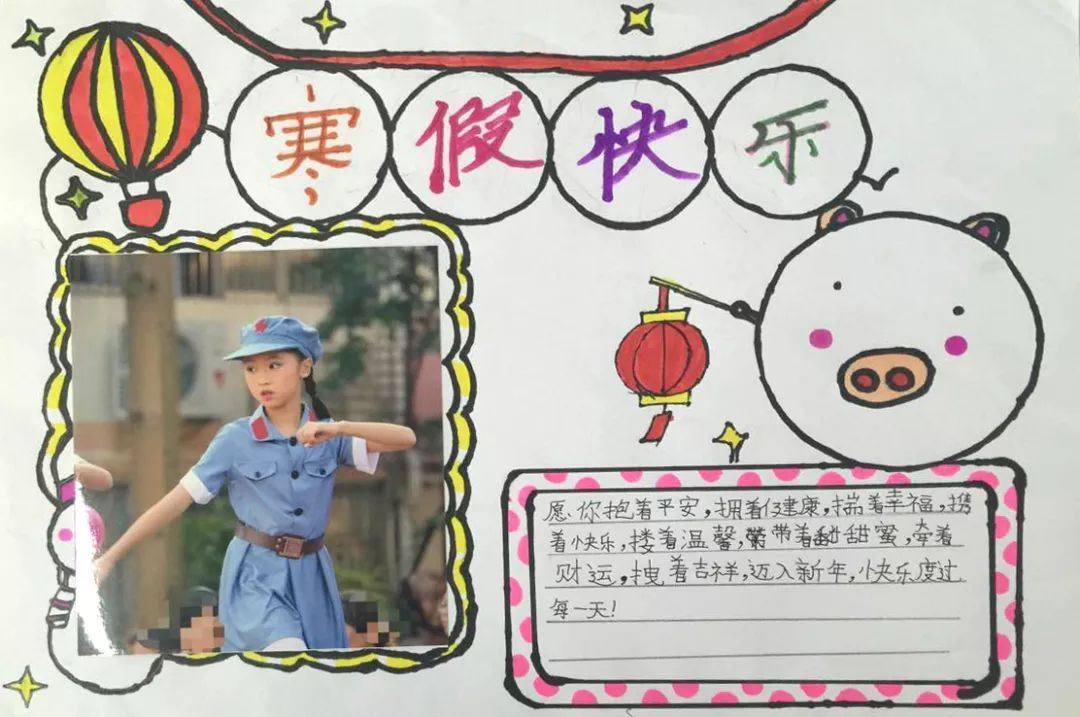 寒假快乐
愿你抱着平安,拥着健康,揣着幸福,携
着快乐,搂着温馨,带着甜蜜,牵着
财运,拽着吉祥,迈入新年,快乐度过
每一天!